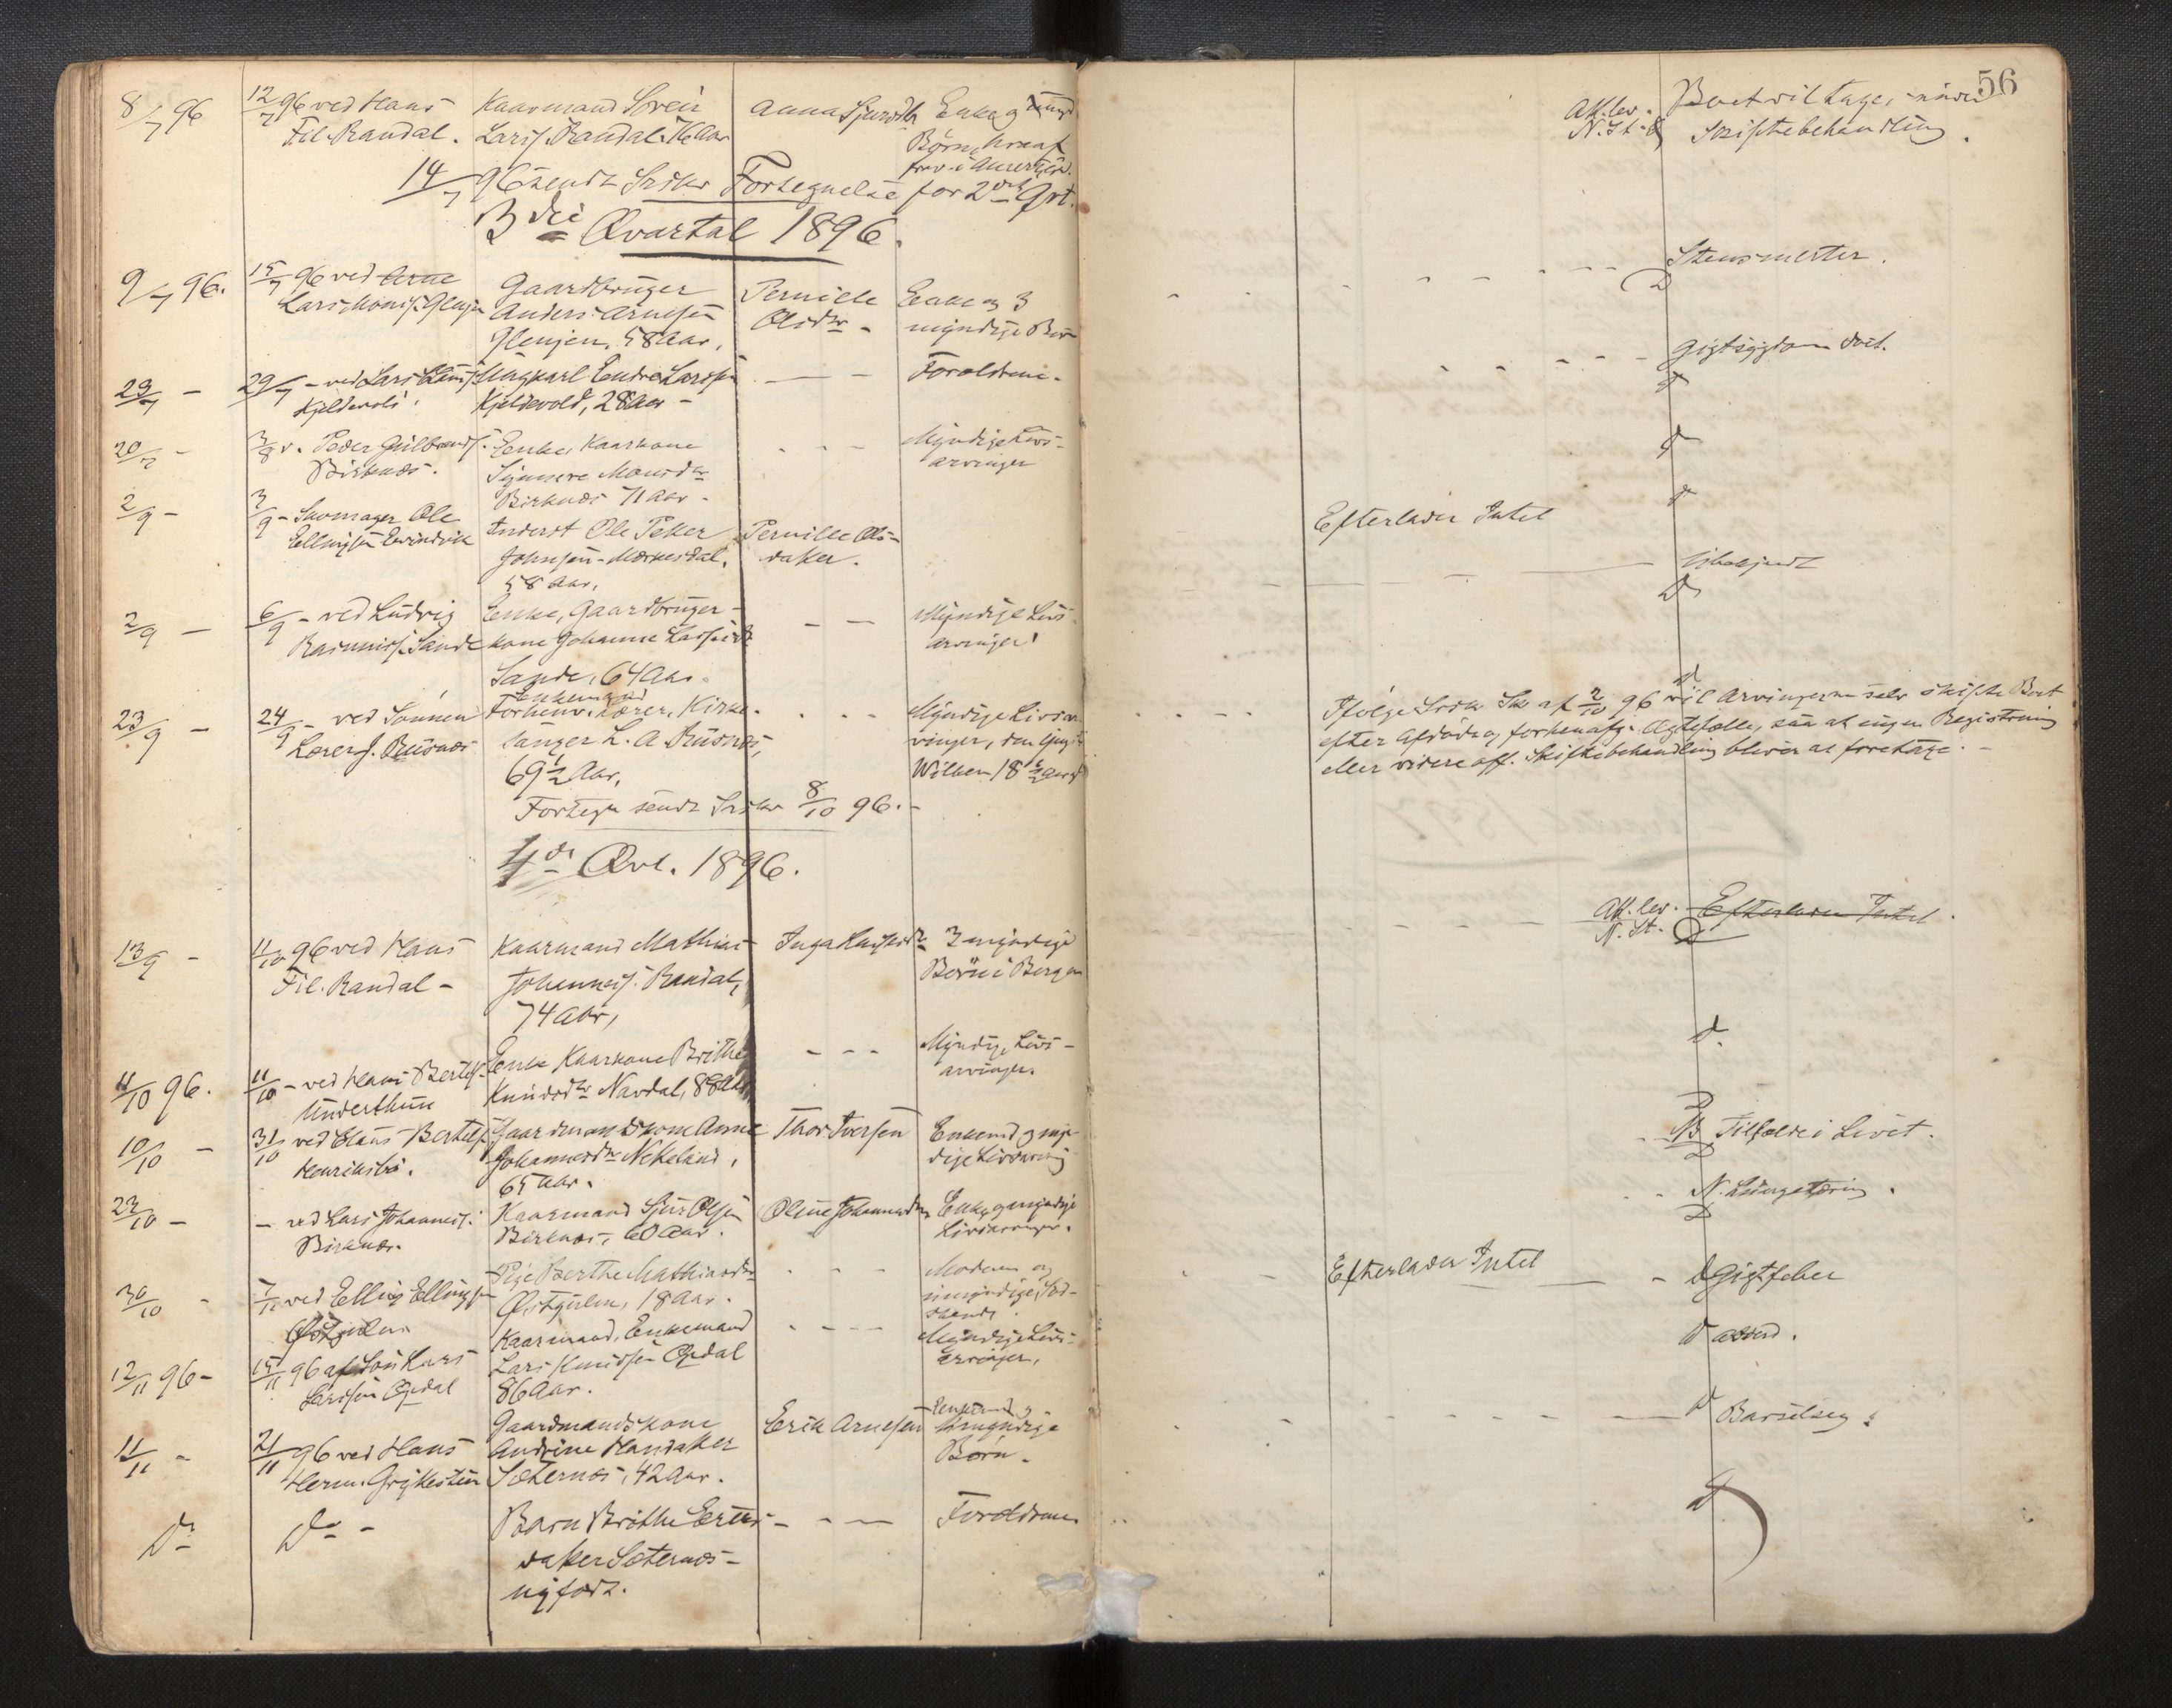 56
8/7 96
12/7 96 ved Hans
Fil. Randal.
Kaarmand Sveir
Larsf. Randal. 76 Aar
Anna Sjursdtr
Enke og
Børn, hvoraf
Akt. lev.
N. St.
Boet vil tages under
Skiftebehandling.
14/7 96 sendt Srskr Fortegnelse for 2det Qrt.
3die Qvartal 1896.
9/7 96.
15/7 96 ved Arne
Lars Monsf. Glenjen
Gaardbruger
Anders Arnesen
Glenjen, 58 Aar,
Pernille
Olsdtr -
Enke og 3
myndige Børn
Stensmerter.
D
23/7 -
29/7 - ved Lars
Kjeldevold.
Ungkarl Endre Larssen
Kjeldevold, 28 Aar -
Forældrene -
Gigtsygdom
d
20/7 -
3/8 v. Peder Gulbrands.
Birknæs.
Enke, Kaarkone
Synneve Monsdtr
Birknæs 71 Aar -
Myndige Livs-
arvinger
d
2/9 -
3/9 - Skomager Ole
Ellingsen Eivindvik
Inderst Ole Peter
Johnsen - Mærkesdal,
58 Aar,
Pernille Ols-
datter.
Efterlader Intet
d
Ubekjendt
D
2/9 -
6/9 - ved Ludvig
Rasmusf. Sande
Enke, Gaardbruger-
kone Johanne Larsdtr
Sande, 64 Aar.
Myndige Livs-
arvinger
d
23/9 -
24/9 - ved Sønnen
Lærer J. Risnæs
Enkemand
Forhenv. Lærer, Kirke-
sanger L. A. Risnæs,
69 1/2 Aar,
Myndige Livsar-
vinger, den yngste
18 1/2 Aar
Ifølge Srskr Sk af 2/10 96 vil Arvingerne selv skifte Boet
efter Afdøde og forhenafg. Ægtefælle, saa at ingen Registrering
eller videre off. Skiftebehandling bliver at foretage. -
Fortegn sendt Srskr 8/10 96. -
4de Qvt. 1896.
13/9 -
11/10 96 ved Hans
Fil. Randal -
Kaarmand Mathias
Johannesf. Randal,
74 Aar,
Inga
3 myndige
Børn i Bergen
Akt. lev.
N. St.
Efterlader Intet
D
11/10 96.
11/10 - ved Hans Bertelf.
Underthun
Enke Kaarkone Brithe
Knudsdtr Navdal, 88 Aar
Myndige Livs-
arvinger.
d.
10/10 -
31/10 ved Claus Bertelf.
Henriksbø.
Gaardmandskone Anne
Johannesdtr Nekeland,
65 Aar.
Thor Iversen
Enkemd og myn-
dige Livsarving
Tilfælde i Livet.
D
22/10 -
- ved Lars Johannesf.
Birknæs.
Kaarmand Sjur Olsen
Birknæs, 60 Aar.
Oline Johannesdtr
Enke og myndige
Livsarvinger.
N. Lungetæring.
D
30/10 -
7/11 ved Elling Ellingsen
Østgulen
Pige Berthe Mathiasdtr
Østgulen, 18 Aar.
Moderen og
umyndige Sød-
skende.
Efterlader Intet
d Gigtfeber
12/11 96 -
15/11 96 af Søn Lars
Larssen Opdal
Kaarmand, Enkemand
Lars Knudsen Opdal
86 Aar.
Myndige Livs-
arvinger,
d
11/11 -
21/11 96 ved Hans
Herm. Grytesten
Gaardmandskone
Andrine Handaker
Sæternæs, 42 Aar.
Erik Arnesen
Enkemd og
Umyndige
Børn.
d Barselseng
Do
Do -
Barn Brithe Eriks-
datter Sæternæs -
nyfødt.
Forældrene
d